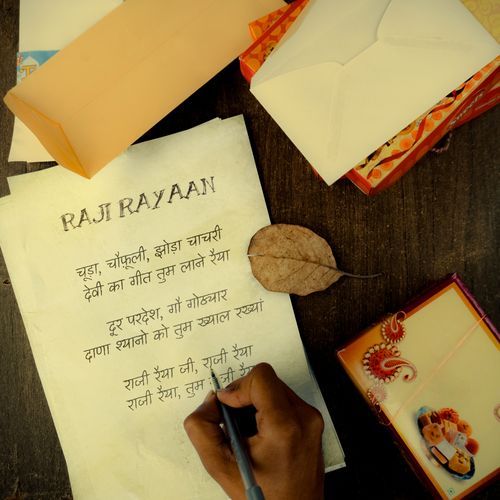 RAJI RAYAAN
चूडा, चौफूली, झोड़ा चाचरी
देवी का गीत तुम लाने रैया
दूर परदेश, गौ गोठ्यार
दाणा श्यानो को तुम ख्याल रख्यां
राजी रैया जी, राजी रैया
राजी रैया, तुम राजी रैया